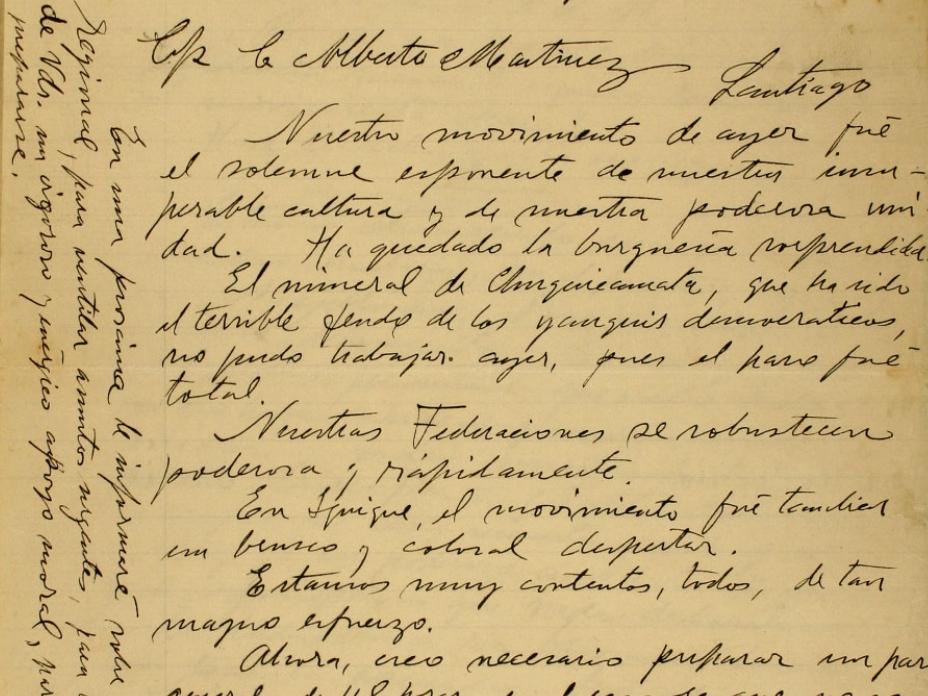 C. Alberto Martinez
Santiago
Nuestro movimiento de ayer fué
el solemne exponente de nuestra insu-
perable cultura y de nuestra poderosa uni-
dad. Ha quedado la burguesía sorprendida.
El mineral de Chuquicamata, que ha sido
el terrible feudo de los yanquis democraticos,
no pudo trabajar ayer, pues el paro fué
total.
Nuestras Federaciones se robustecen
poderosa y rápidamente.
En Iquique, el movimiento fué tambien
un bello y colosal despertar.
Estamos muy contentos, todos, de tan
magno esfuerzo.
Ahora, creo necesario preparar un par
de 48 horas
En una proxima le informaré sobre
Regional, para ventilar asuntos urgentes, para
de Vds. un vigoroso y enérgico apoyo moral,
prepararse.